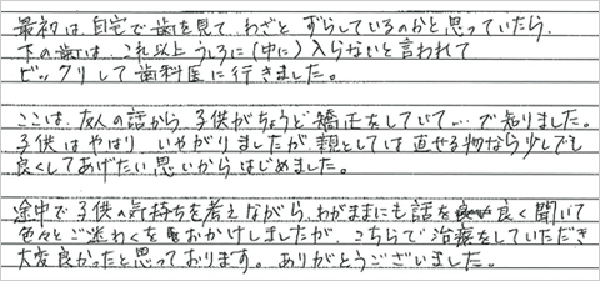 最初は、自宅で歯を見て、わざと ずらしているのかと思っていたら、
下の歯は、これ以上 うしろに(中に)入らないと言われて
ビックリして歯科医に行きました。
ここは、友人の話から 子供がちょうど矯正をしていて…で知りました。
子供はやはり いやがりましたが、親としては 直せる物なら少しでも
良くしてあげたい思いから はじめました。
途中で子供の気持ちを考えながら、わがままにも話を 良く聞いて
色々とご迷わくをおかけしましたが、こちらで治療をしていただき
大変良かったと思っております。ありがとうございました。